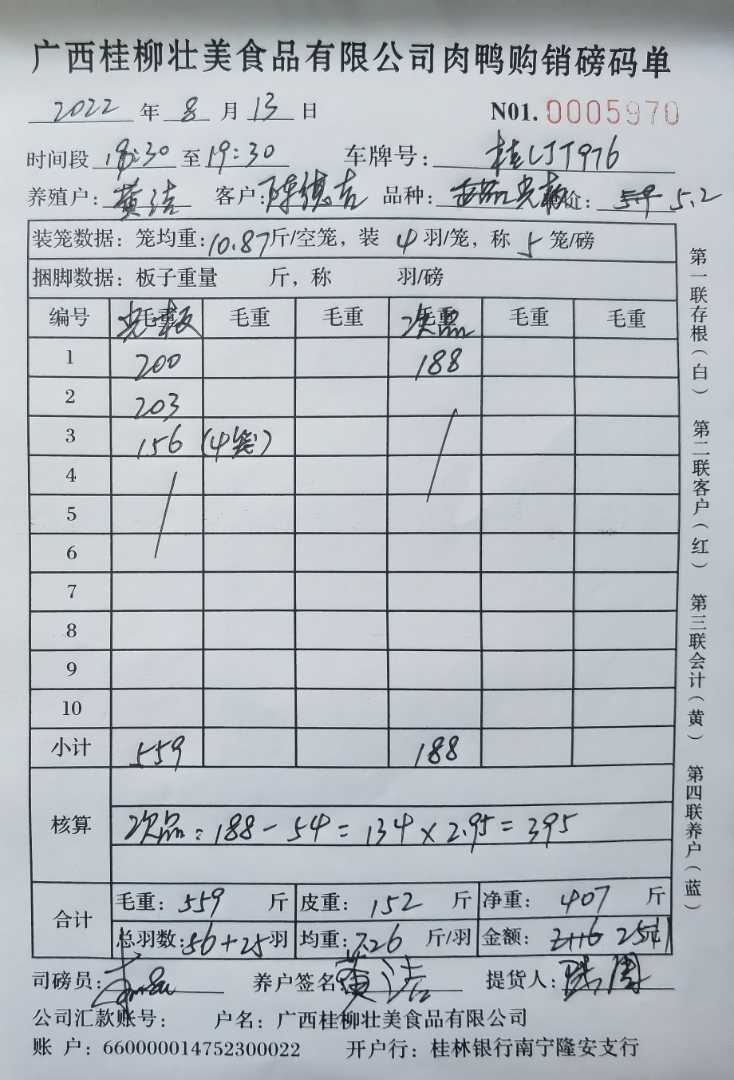 广西桂柳壮美食品有限公司肉鸭购销磅码单
2022 年 8 月 13 日 N01. 0005970
时间段 18:30 至 19:30 车牌号: 桂LJT976
养殖户: 黄洁 客户: 陈德吉 品种: 价: 5.2
装笼数据: 笼均重: 10.87 斤/空笼, 装 4 羽/笼, 称 5 笼/磅
捆脚数据: 板子重量 斤, 称 羽/磅
编号 毛重 毛重 毛重 次品 毛重 毛重
1 200 188
2 203
3 156 (4笼)
4
5
6
7
8
9
10
小计 559 188
核算 次品: 188-54=134×2.95=395
合计 毛重: 559 斤 皮重: 152 斤 净重: 407 斤
总羽数: 56+25 羽 均重: 7.26 斤/羽 金额: 2116 2541
司磅员: 养户签名 黄洁 提货人:
公司汇款账号: 户名: 广西桂柳壮美食品有限公司
账 户: 660000014752300022 开户行: 桂林银行南宁隆安支行
第一联存根(白) 第二联客户(红) 第三联会计(黄) 第四联养户(蓝)